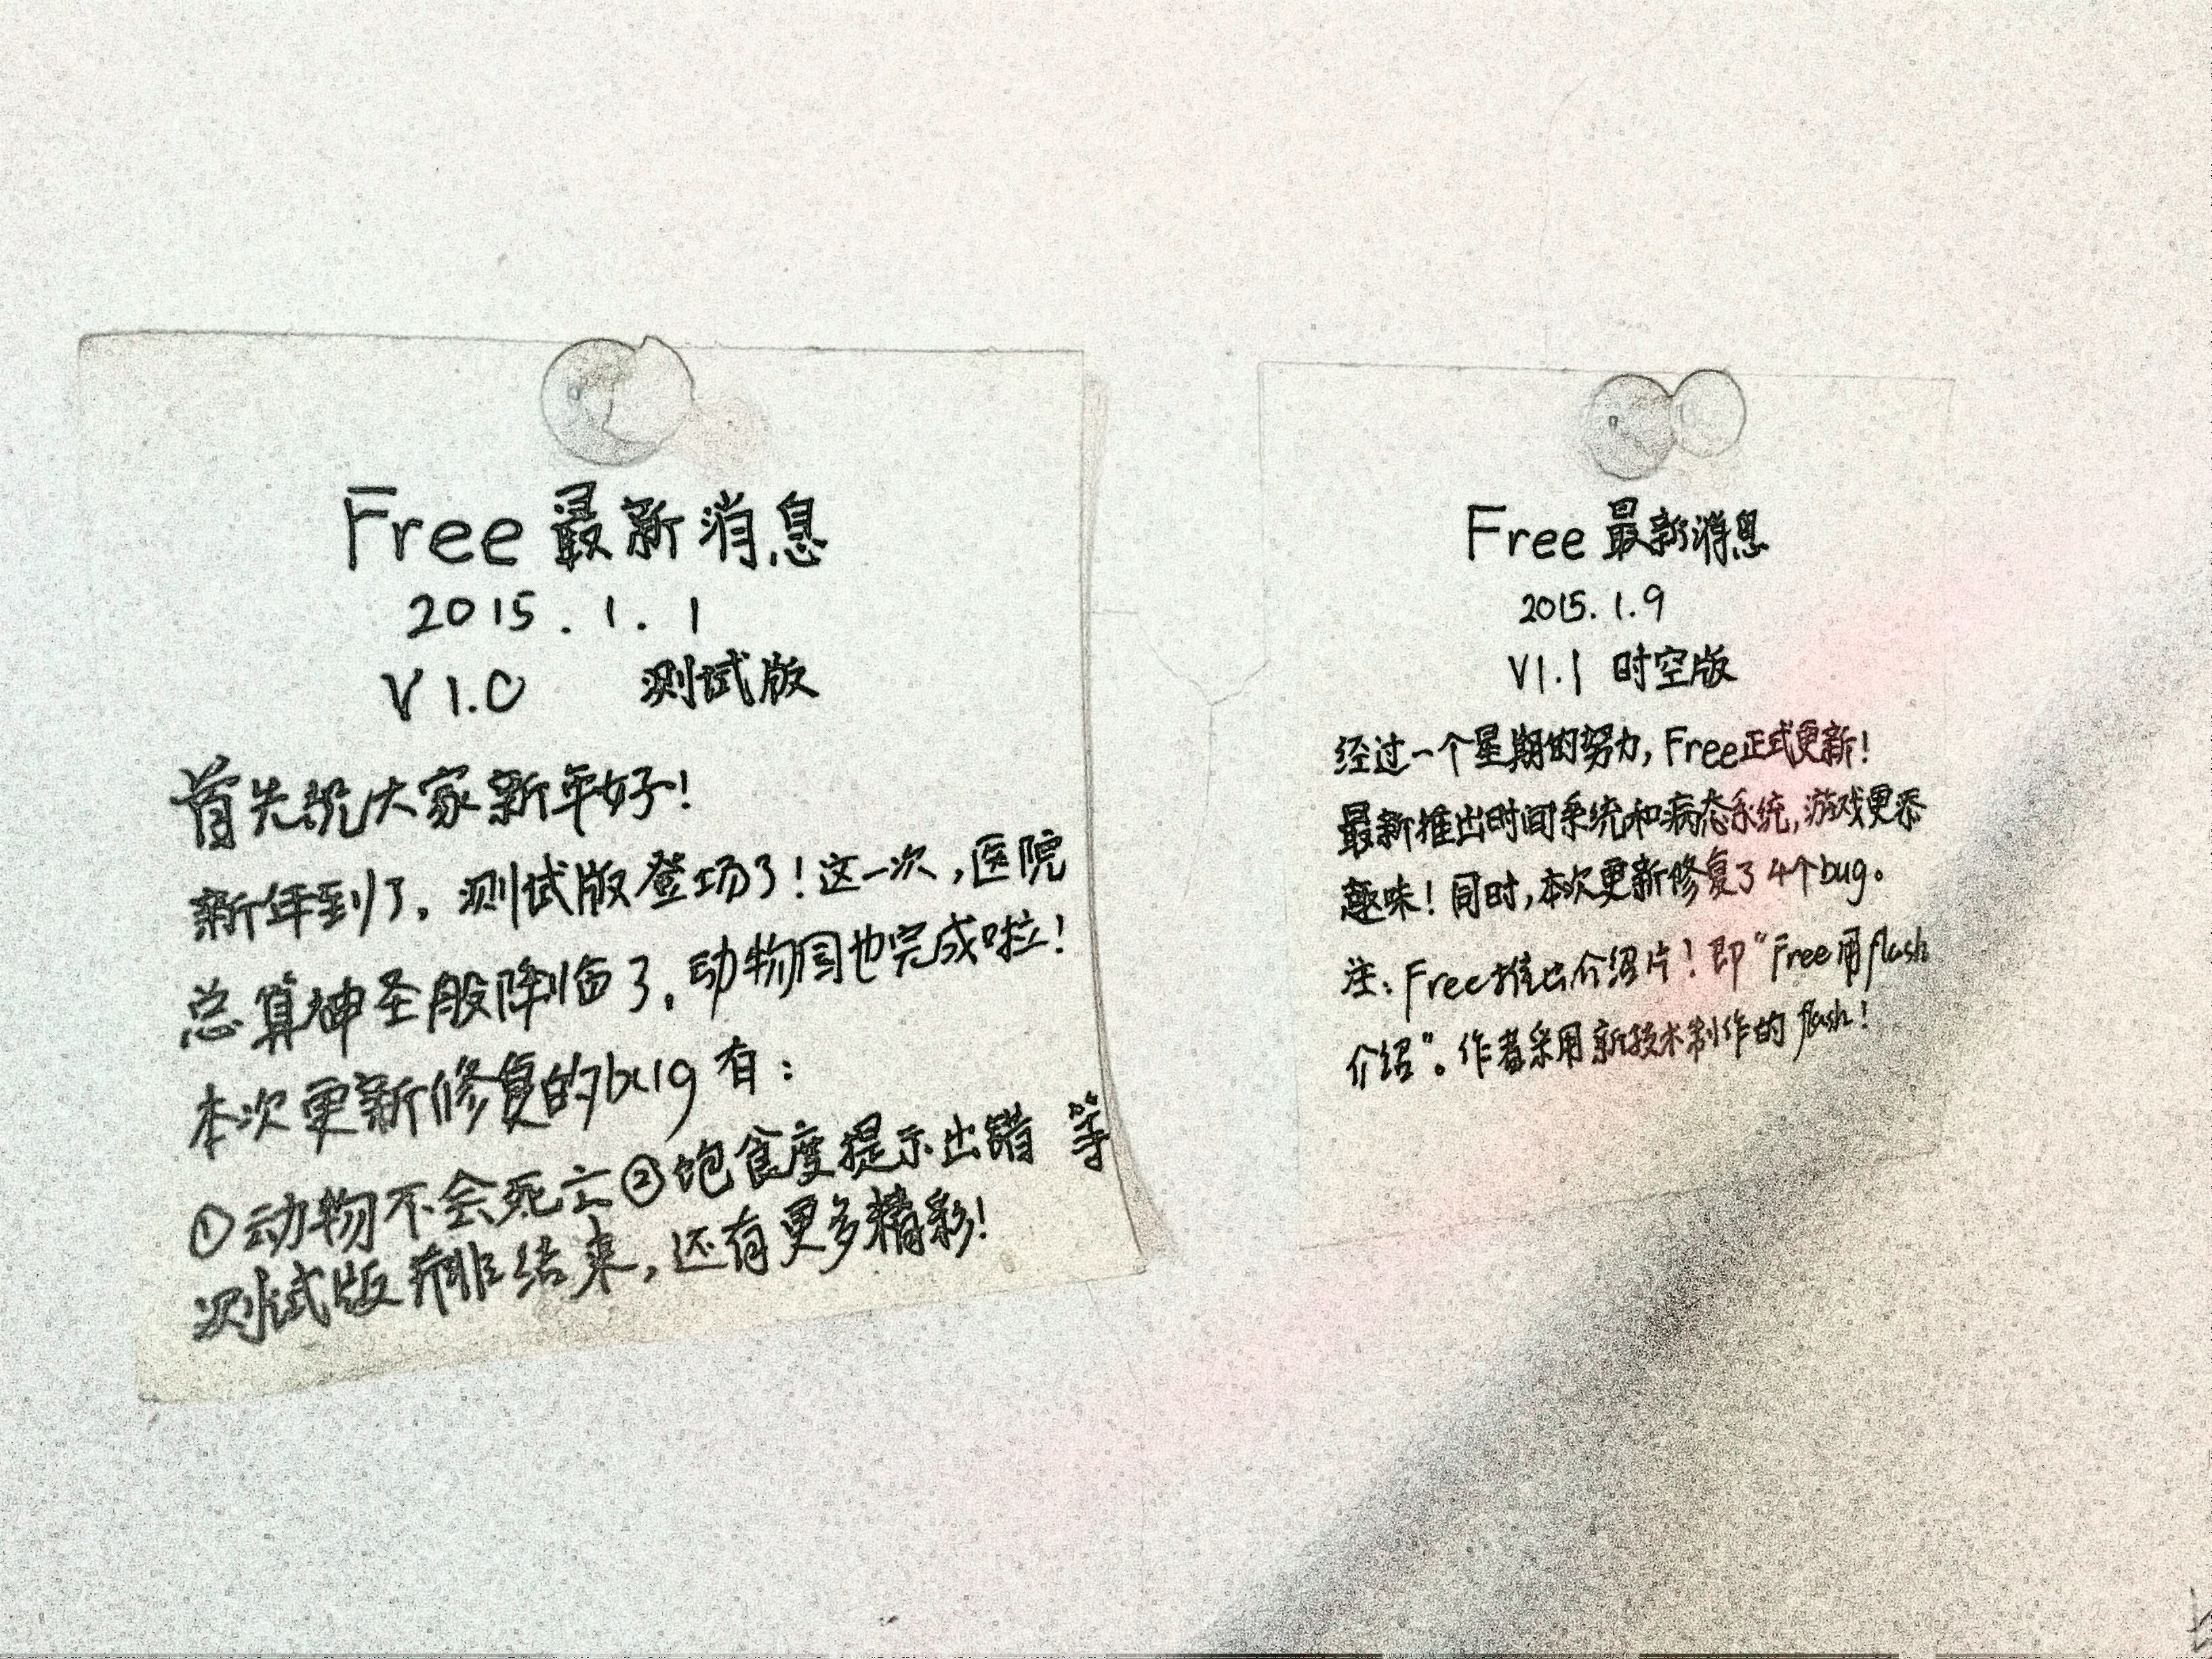 Free 最新消息
2015.1.1
V1.0 测试版
首先祝大家新年好!
新年到了。测试版登场了!这一次,医院
总算神圣般降临了。动物园也完成啦!
本次更新修复的bug有:
①动物不会死亡②饱食度提示出错 等
测试版并非结束,还有更多精彩!
Free 最新消息
2015.1.9
V1.1 时空版
经过一个星期的努力,Free正式更新!
最新推出时间系统和病态系统,游戏更添
趣味!同时,本次更新修复了4个bug。
注:Free推出介绍片!即“Free用flash
介绍”。作者采用新技术制作的flash!